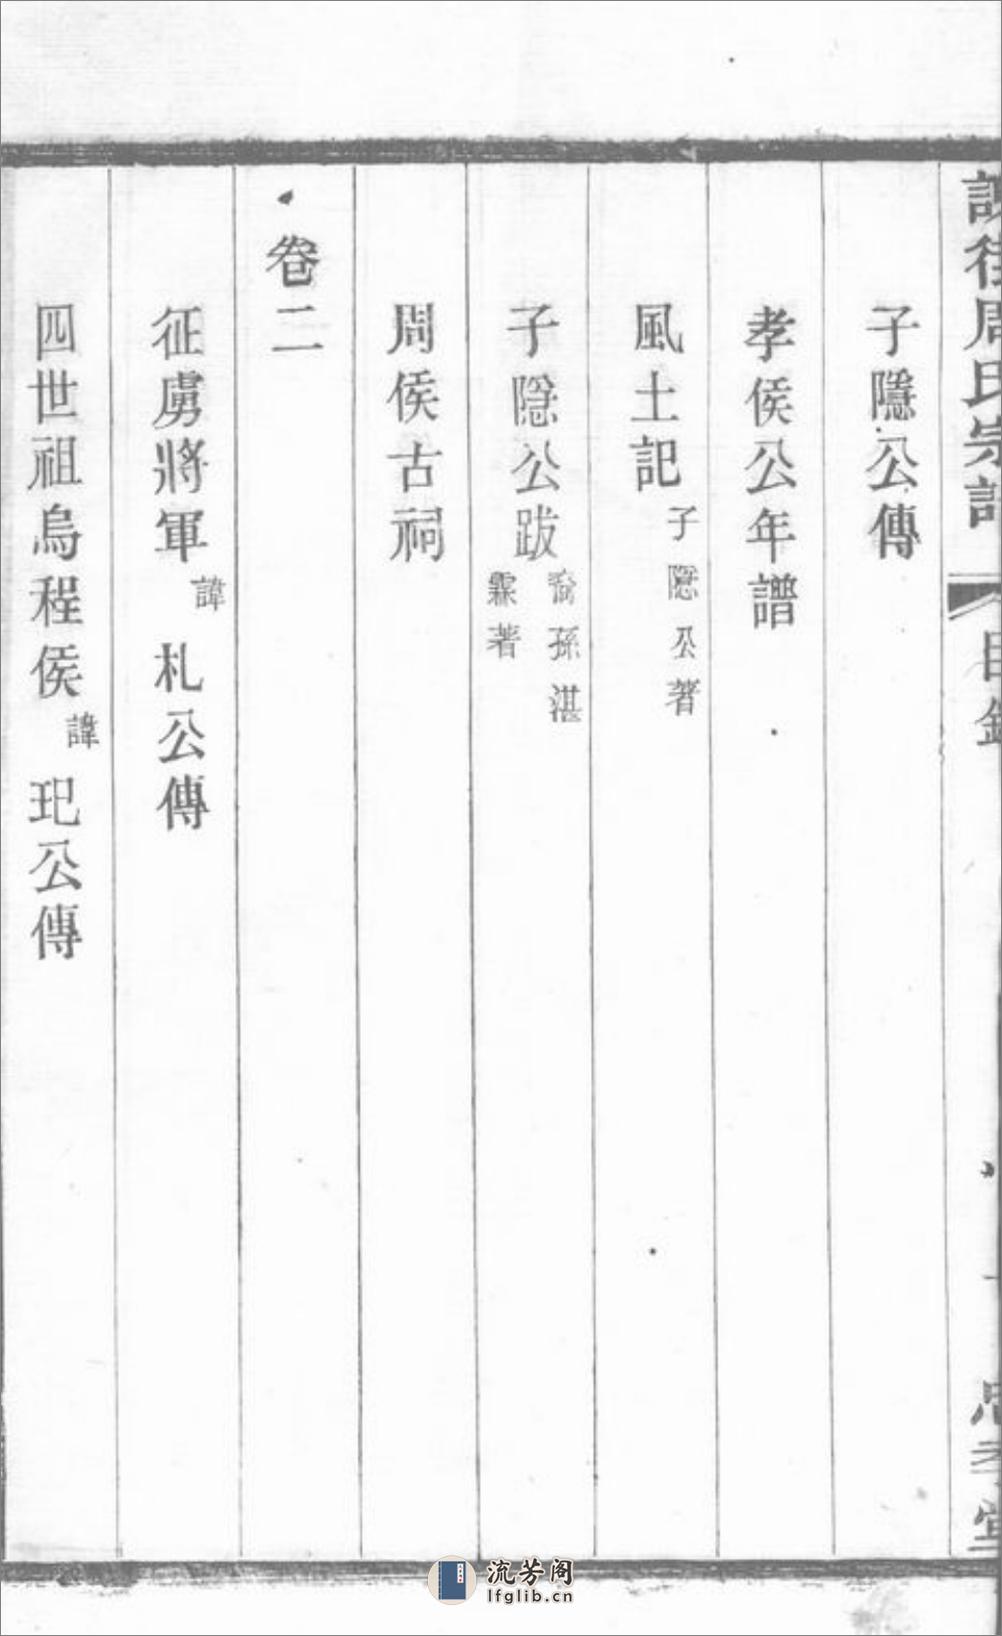 周氏宗譜 目錄 忠孝堂
子隱公傳
孝侯公年譜
風土記 子隱公著
子隱公跋 裔孫湛霖著
周侯古祠
卷二
征虜將軍諱札公傳
四世祖烏程侯諱玘公傳
流芳阁
lfglib.cn